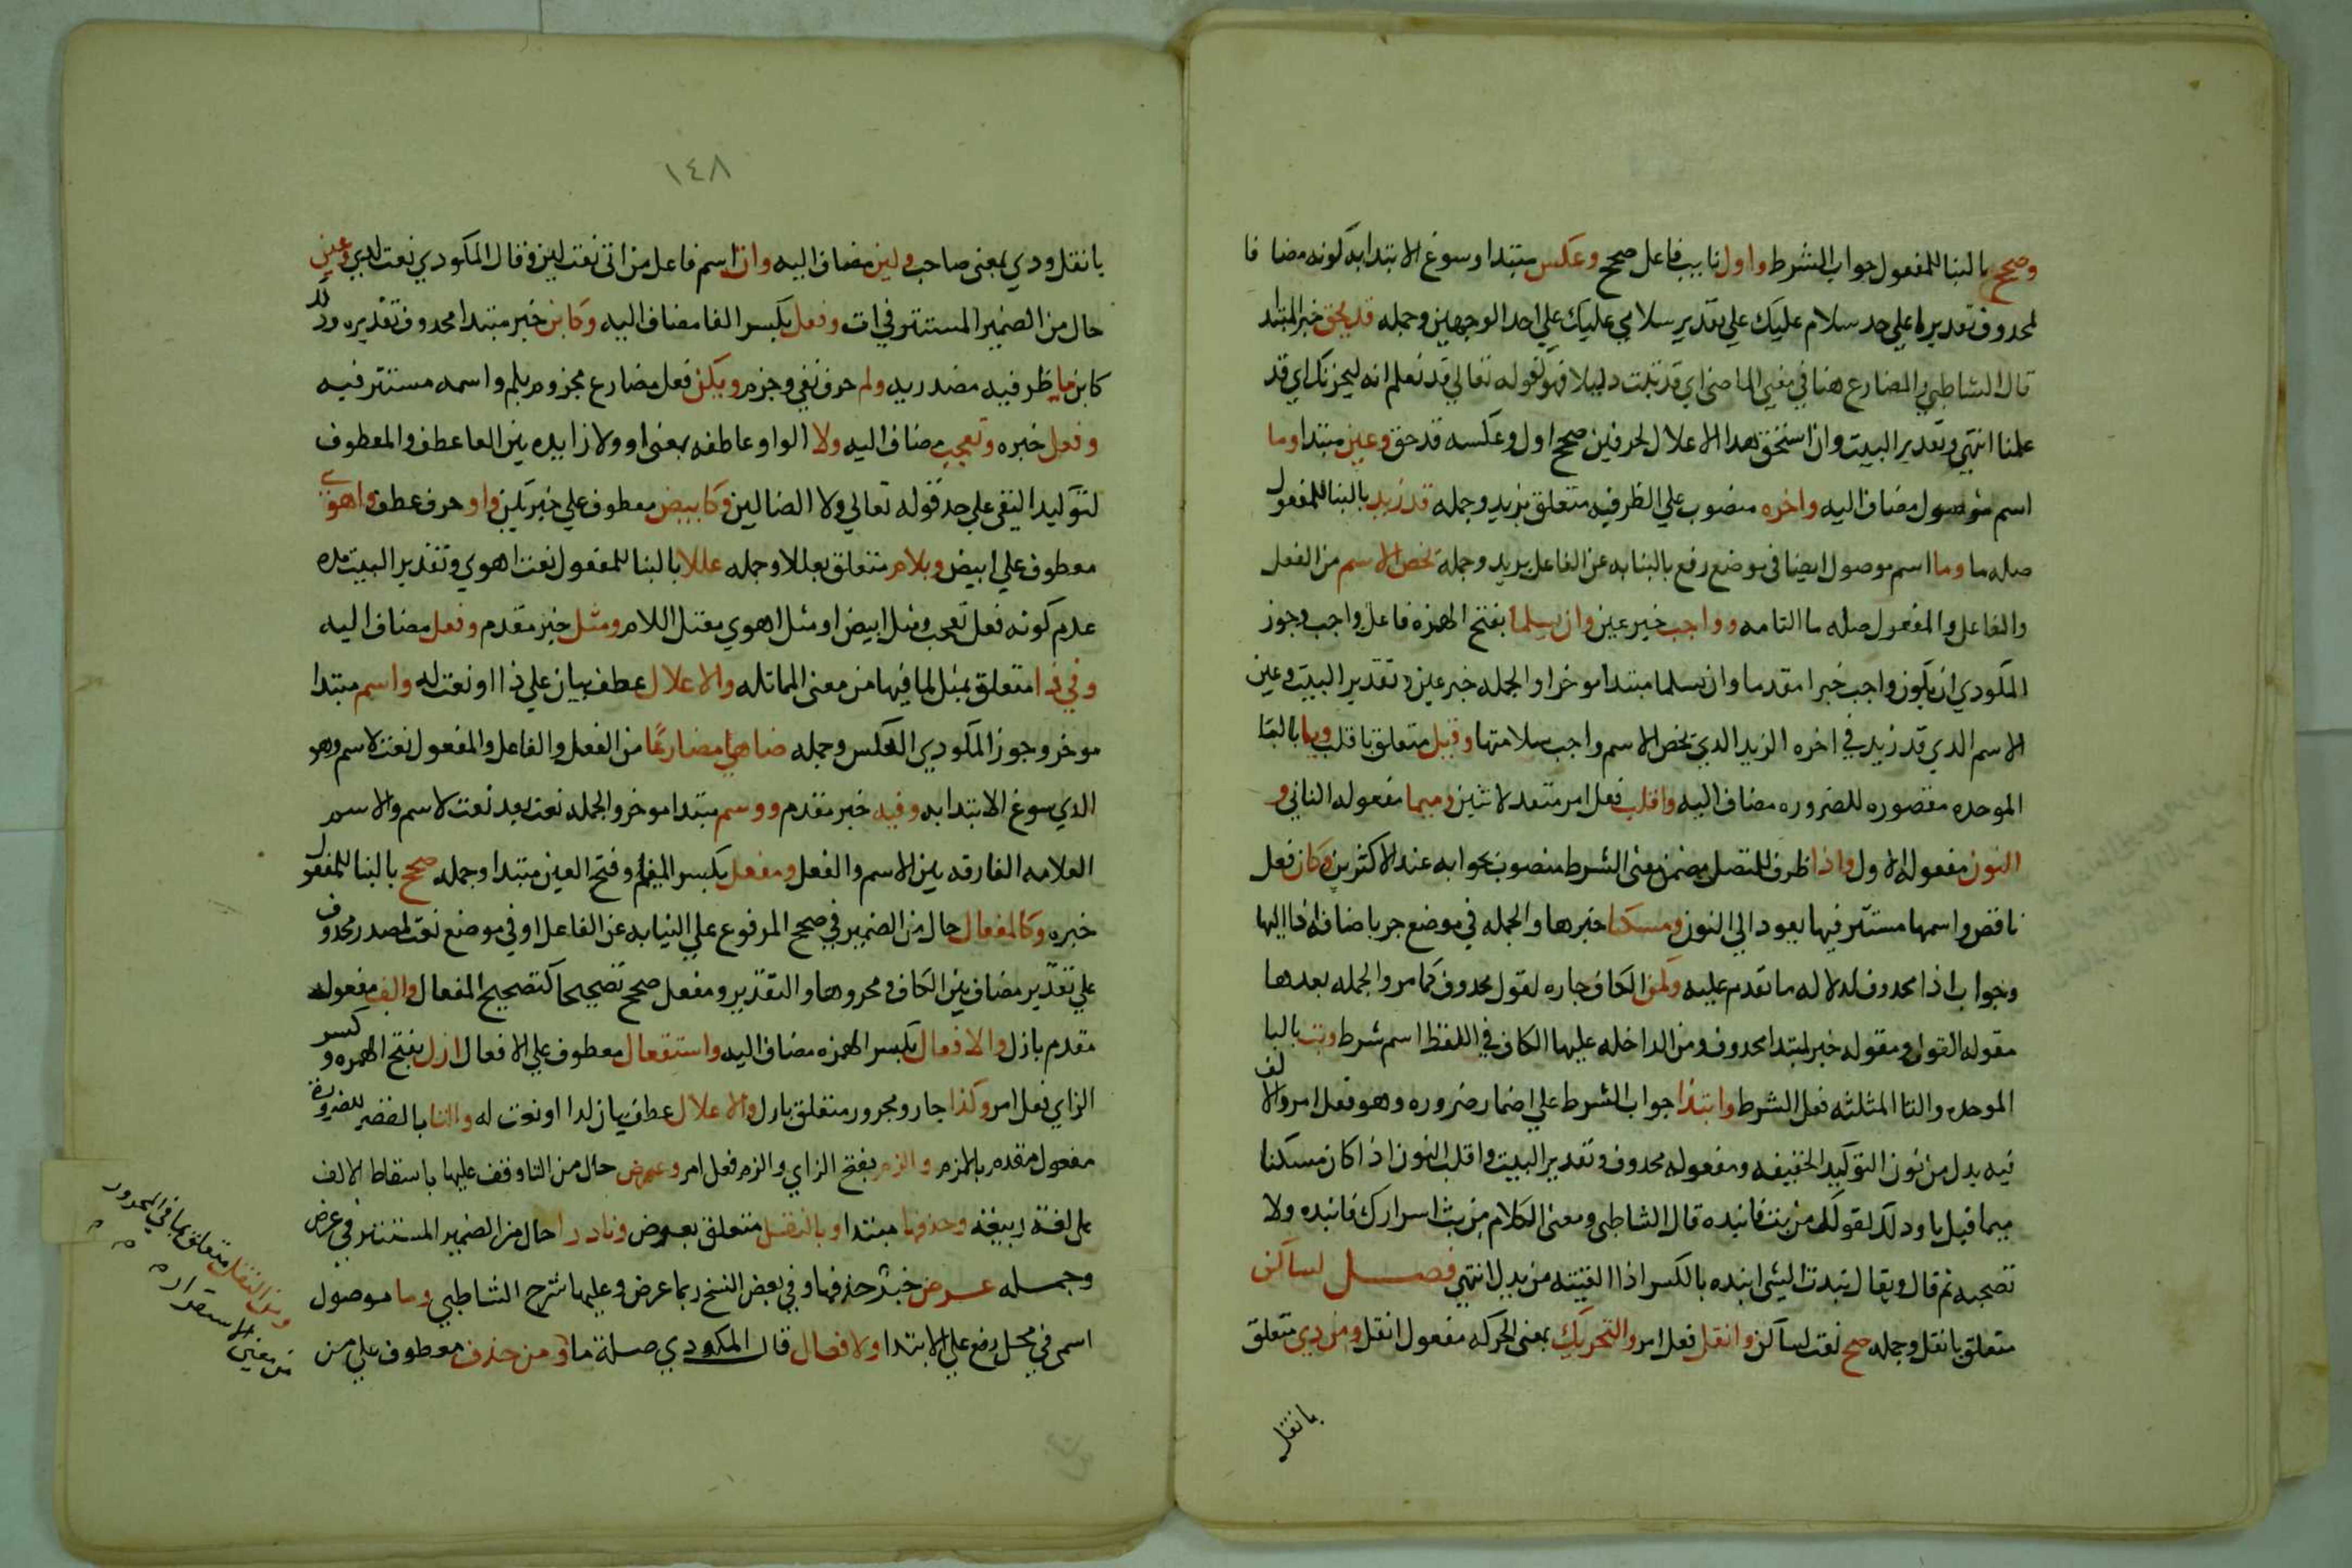 وصحح بالبنا للمفعول جواب الشرط واول نايب فاعل صحح وعكس مبتدا وسوغ الابتدا به كونه مضافا
لمحدوف تقديرها علي حد سلام عليك علي تقدير سلامي عليك علي احد الوجهين وجمله قد يحق خبر المبتدا
قال الشاطبي والمضارع هنا في معني الماضي اي قد ثبت دليلا فهو كقوله تعالي قد نعلم انه ليحزنك اي قد
علمنا انتهي وتقدير البيت وان استحق هدا الاعلال لحرفين صحح اول وعكسه قد حق وعين مبتدا وما
اسم موصول مضاف اليه واخره منصوب علي الظرفيه متعلق بزيد وجمله قد زيد بالبنا للمفعول
صله ما وما اسم موصول ايضا في موضع رفع بالنيابه عن الفاعل بزيد وجملة يخص الاسم من الفعل
والفاعل والمفعول صله ما التامه وواجب خبر عين وان يسلما بفتح الهمزه فاعل واجب وجوز
المكودي ان يكون واجب خبرا مقدما وان يسلما مبتدا موخرا والجمله خبر عين وتقدير البيت وعين
الاسم الدي قد زيد في اخره الزيد الدي يخص الاسم واجب سلامتها وقبل متعلق باقلب وبا بالبا
الموحده مقصوره للضروره مضاف اليه واقلب فعل امر متعد لاثنين وميما مفعوله الثاني و
النون مفعوله الاول واذا ظرف للمتصل مضمن معني الشرط منصوب بجوابه عند الاكثرين وكان فعل
ناقص واسمها مستتر فيها يعود الي النون ومسكنا خبرها والجمله في موضع جر باضافه اذا اليها
وجواب اذا محدوف لدلاله ما تقدم عليه وكمن الكاف جاره لقول محدوف كما مر والجمله بعدها
مقوله القول ومقوله خبر لمبتدا محدوف ومن الداخله عليها الكاف في اللفظ اسم شرط وبت بالبا
الموحده والتا المثلثه فعل الشرط وانبذا جواب الشرط علي اضمار ضروره وهو فعل امر والالف
فيه بدل من نون التوكيد الخفيفه ومفعوله محدوف وتقدير البيت واقلب النون اذا كان مسكنا
ميما قبل با ودلك لقولك من بت فانبده قال الشاطبي ومعني الكلام من بث اسرارك فانبده ولا
تصحبه ثم قال ويقال نبدت الشي انبده بالكسر اذا القيته من يدك انتهي فصل لساكن
متعلق بانقل وجمله صح نعت لساكن وانقل فعل امر والتحريك بمعني الحركه مفعول انقل ومن دي متعلق
بانقل
١٤٨
بانقل ودي بمعني صاحب ولين مضاف اليه وات اسم فاعل من اتي نعت لين وقال المكودي نعت لدي وعين
حال من الضمير المستتر في ات وفعل بكسر الفا مضاف اليه وكابن خبر مبتدا محدوف تقديره ودلك
كابن ما ظرفيه مصدريه ولم حرف نفي وجزم ويكن فعل مضارع مجزوم بلم واسمه مستتر فيه
وفعل خبره وتعجب مضاف اليه ولا الواو عاطفه بمعني او ولا زايده بين العاطف والمعطوف
لتوكيد النفي علي حد قوله تعالي ولا الضالين وكابيض معطوف علي خبر يكن واو حرف عطف واهوي
معطوف علي ابيض وبلام متعلق بعللا وجمله عللا بالبنا للمفعول نعت اهوي وتقدير البيت مده
عدم كونه فعل تعجب ومثل ابيض او مثل اهوي معتل اللام ومثل خبر مقدم وفعل مضاف اليه
وفي ذا متعلق بمثل لما فيها من معني المماثله والاعلال عطف بيان علي ذا او نعت له واسم مبتدا
موخر وجوز المكودي العكس وجمله ضاهي مضارعا من الفعل والفاعل والمفعول نعت لاسم وهو
الدي سوغ الابتدا به وفيه خبر مقدم ووسم مبتدا موخر والجمله نعت بعد نعت لاسم والاسم
العلامه الفارقه بين الاسم والفعل ومفعل بكسر الميم وفتح العين مبتدا وجمله صحح بالبنا للمفعول
خبره وكالمفعال حال من الضمير في صحح المرفوع علي النيابه عن الفاعل او في موضع نعت لمصدر محدوف
علي تقدير مضاف بين الكاف ومجرورها والتقدير ومفعل صحح تصحيحا كتصحيح المفعال والف مفعول
مقدم بازل والافعال بكسر الهمزه مضاف اليه واستفعال معطوف علي الافعال ازل بفتح الهمزه وكسر
الزاي فعل امر وكذا جار ومجرور متعلق بازل والاعلال عطف بيان لدا او نعت له والتا بالقصر للضروره
مفعول مقدم بالزم والزم بفتح الزاي والزم فعل امر وعوض حال من التا وقف عليها باسقاط الالف
علي لغة ربيعه وحذفها مبتدا وبالنقل متعلق بعرض ونادرا حال من الضمير المستتر في عرض
وجمله عرض خبر حذفها وفي بعض النسخ ربما عرض وعليها شرح الشاطبي وما موصول
اسمي في محل رفع علي الابتدا ولافعال قال المكودي صلة ما ومن حذف معطوف علي من
ومن النقل متعلق بما في المجرور
من معني الاستقرار ه